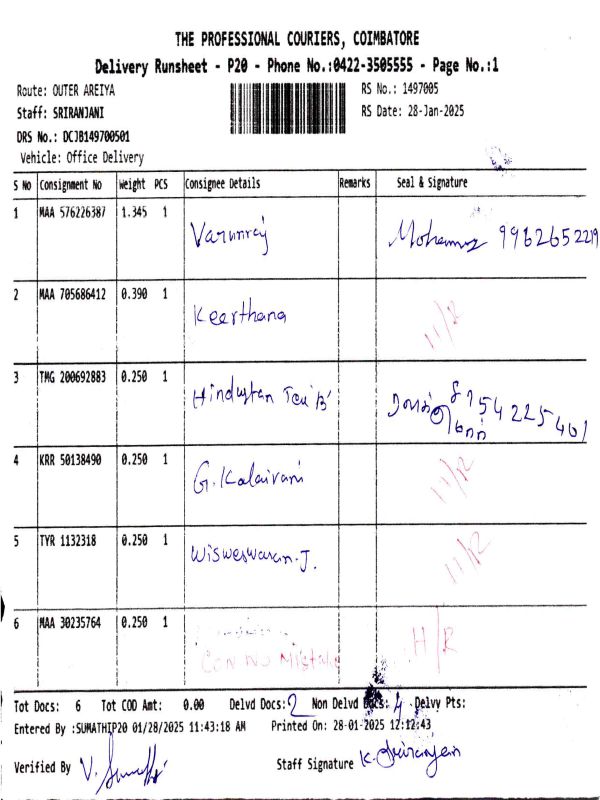 THE PROFESSIONAL COURIERS, COIMBATORE
Delivery Runsheet - P20 - Phone No.:0422-3505555 - Page No.:1
Route: OUTER AREIYA RS No.: 1497005
Staff: SRIRANJANI RS Date: 28-Jan-2025
DRS No.: DCJB149700501
Vehicle: Office Delivery
S No Consignment No Weight PCS Consignee Details Remarks Seal & Signature
1 MAA 576226387 1.345 1 Varunraj 9962652219
2 MAA 705686412 0.390 1 Keerthana
3 TMG 200692883 0.250 1 Hindustan Tex 'B' 8754225461
4 KRR 50138490 0.250 1 G. Kalaivani
5 TYR 1132318 0.250 1 Wisweswaran.J.
6 MAA 30235764 0.250 1 H/R
Con No Mistake
Tot Docs: 6 Tot COD Amt: 0.00 Delvd Docs: 2 Non Delvd Docs: 4 Delvy Pts:
Entered By :SUMATHIP20 01/28/2025 11:43:18 AM Printed On: 28-01-2025 12:12:43
Verified By Staff Signature